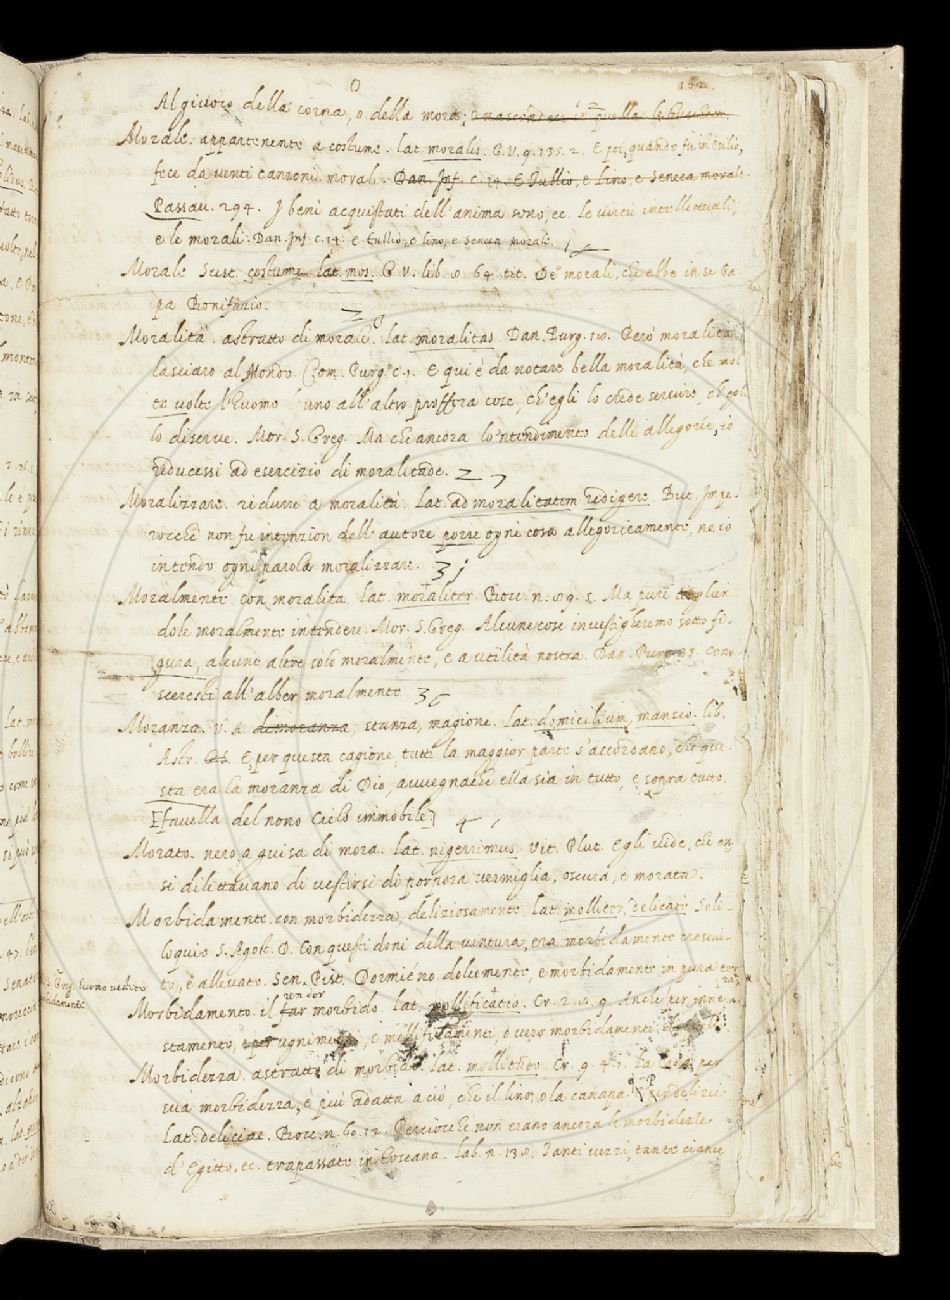 O
162.
Al giuoco della corna, o della mora,
Morale. appartenente a costume. lat. moralis. G.V. 9. 135. 2. E poi, quando fu in esilio,
fece da venti canzoni morali. Dan. Inf. c. 14. E Tullio, e Lino, e Seneca morale.
Passav. 294. I beni acquistati dell'anima sono, ec. le virtù intellettuali,
e le morali. Dan. Inf. c. 14. e Tullio, e lino, e Seneca morale.
Morale Sust. costume. lat. mos. G.V. lib. 8. 64. tit. De' morali, che ebbe in se Pa-
pa Bonifazio.
Moralità. astratto di morale. lat. moralitas. Dan. Purg. 18. Però moralità
lasciaro al Mondo. Com. Purg. c. 1. E qui è da notare bella moralità, che mol-
te volte l'huomo uno all'altro profferà cose, ch'egli lo crede servire, ch'egli
lo diserve. Mor. S. Greg. Ma che ancora lo'ntendimento delle allegorie, io
reducessi ad esercizio di moralitade.
Moralizzare. ridurre a moralità. lat. ad moralitatem redigere. But. Impe-
rocchè non fu intenzion dell'autore porre ogni cosa allegoricamente, ne io
intendo ogni parola moralizzare.
Moralmente con moralità. lat. moraliter. Bocc. n. 89. 5. Ma pure
dole moralmente intendere. Mor. S. Greg. Alcune cose investigheremo sotto fi-
gura, alcune altre solo moralmente, e a utilità nostra. Dan. Purg. 33. Cono-
sceresti all'alber moralmente
Moranza. V. A. dimoranza, stanza, magione. lat. domicilium, mansio. lib.
Astr. E per questa cagione, tutti la maggior parte s'accordano, che que-
sta era la moranza di Dio, avvegnachè ella sia in tutto, e sopra tutto.
[favella del nono Cielo immobile]
Morato. nero a guisa di mora. lat. nigerrimus. Vit. Plut. Egli vide, che es-
si dilettavano di vestirsi di porpora vermiglia, oscura, e morata.
Morbidamente. con morbidezza, deliziosamente. lat. molliter, delicate. Soli-
loquio S. Agost. D. Con questi doni della ventura, era morbidamente cresciu-
to, e allevato. Sen. Pist. Dormiéno dolcemente, e morbidamente in pura ter-
ra
Greg. Suono udito
Morbidamento. il far morbido. lat. mollificatio. Cr. 2. 8. 9. Anche per inne-
ren der
stamento, ognimenti, e mollificamenti, o vero morbidamenti
Morbidezza. astratto di morbido. lat. mollitudo. Cr. 9. per
sua morbidezza, è più adatta a ciò, che il lino, o la canapa. Per delizie.
lat. deliciae. Bocc. n. 60. 12. Perciocchè non erano ancora le morbidezze
d'Egitto, ec. trapassate in Toscana. lab. n. 138. Tanti vezzi, tante ciance